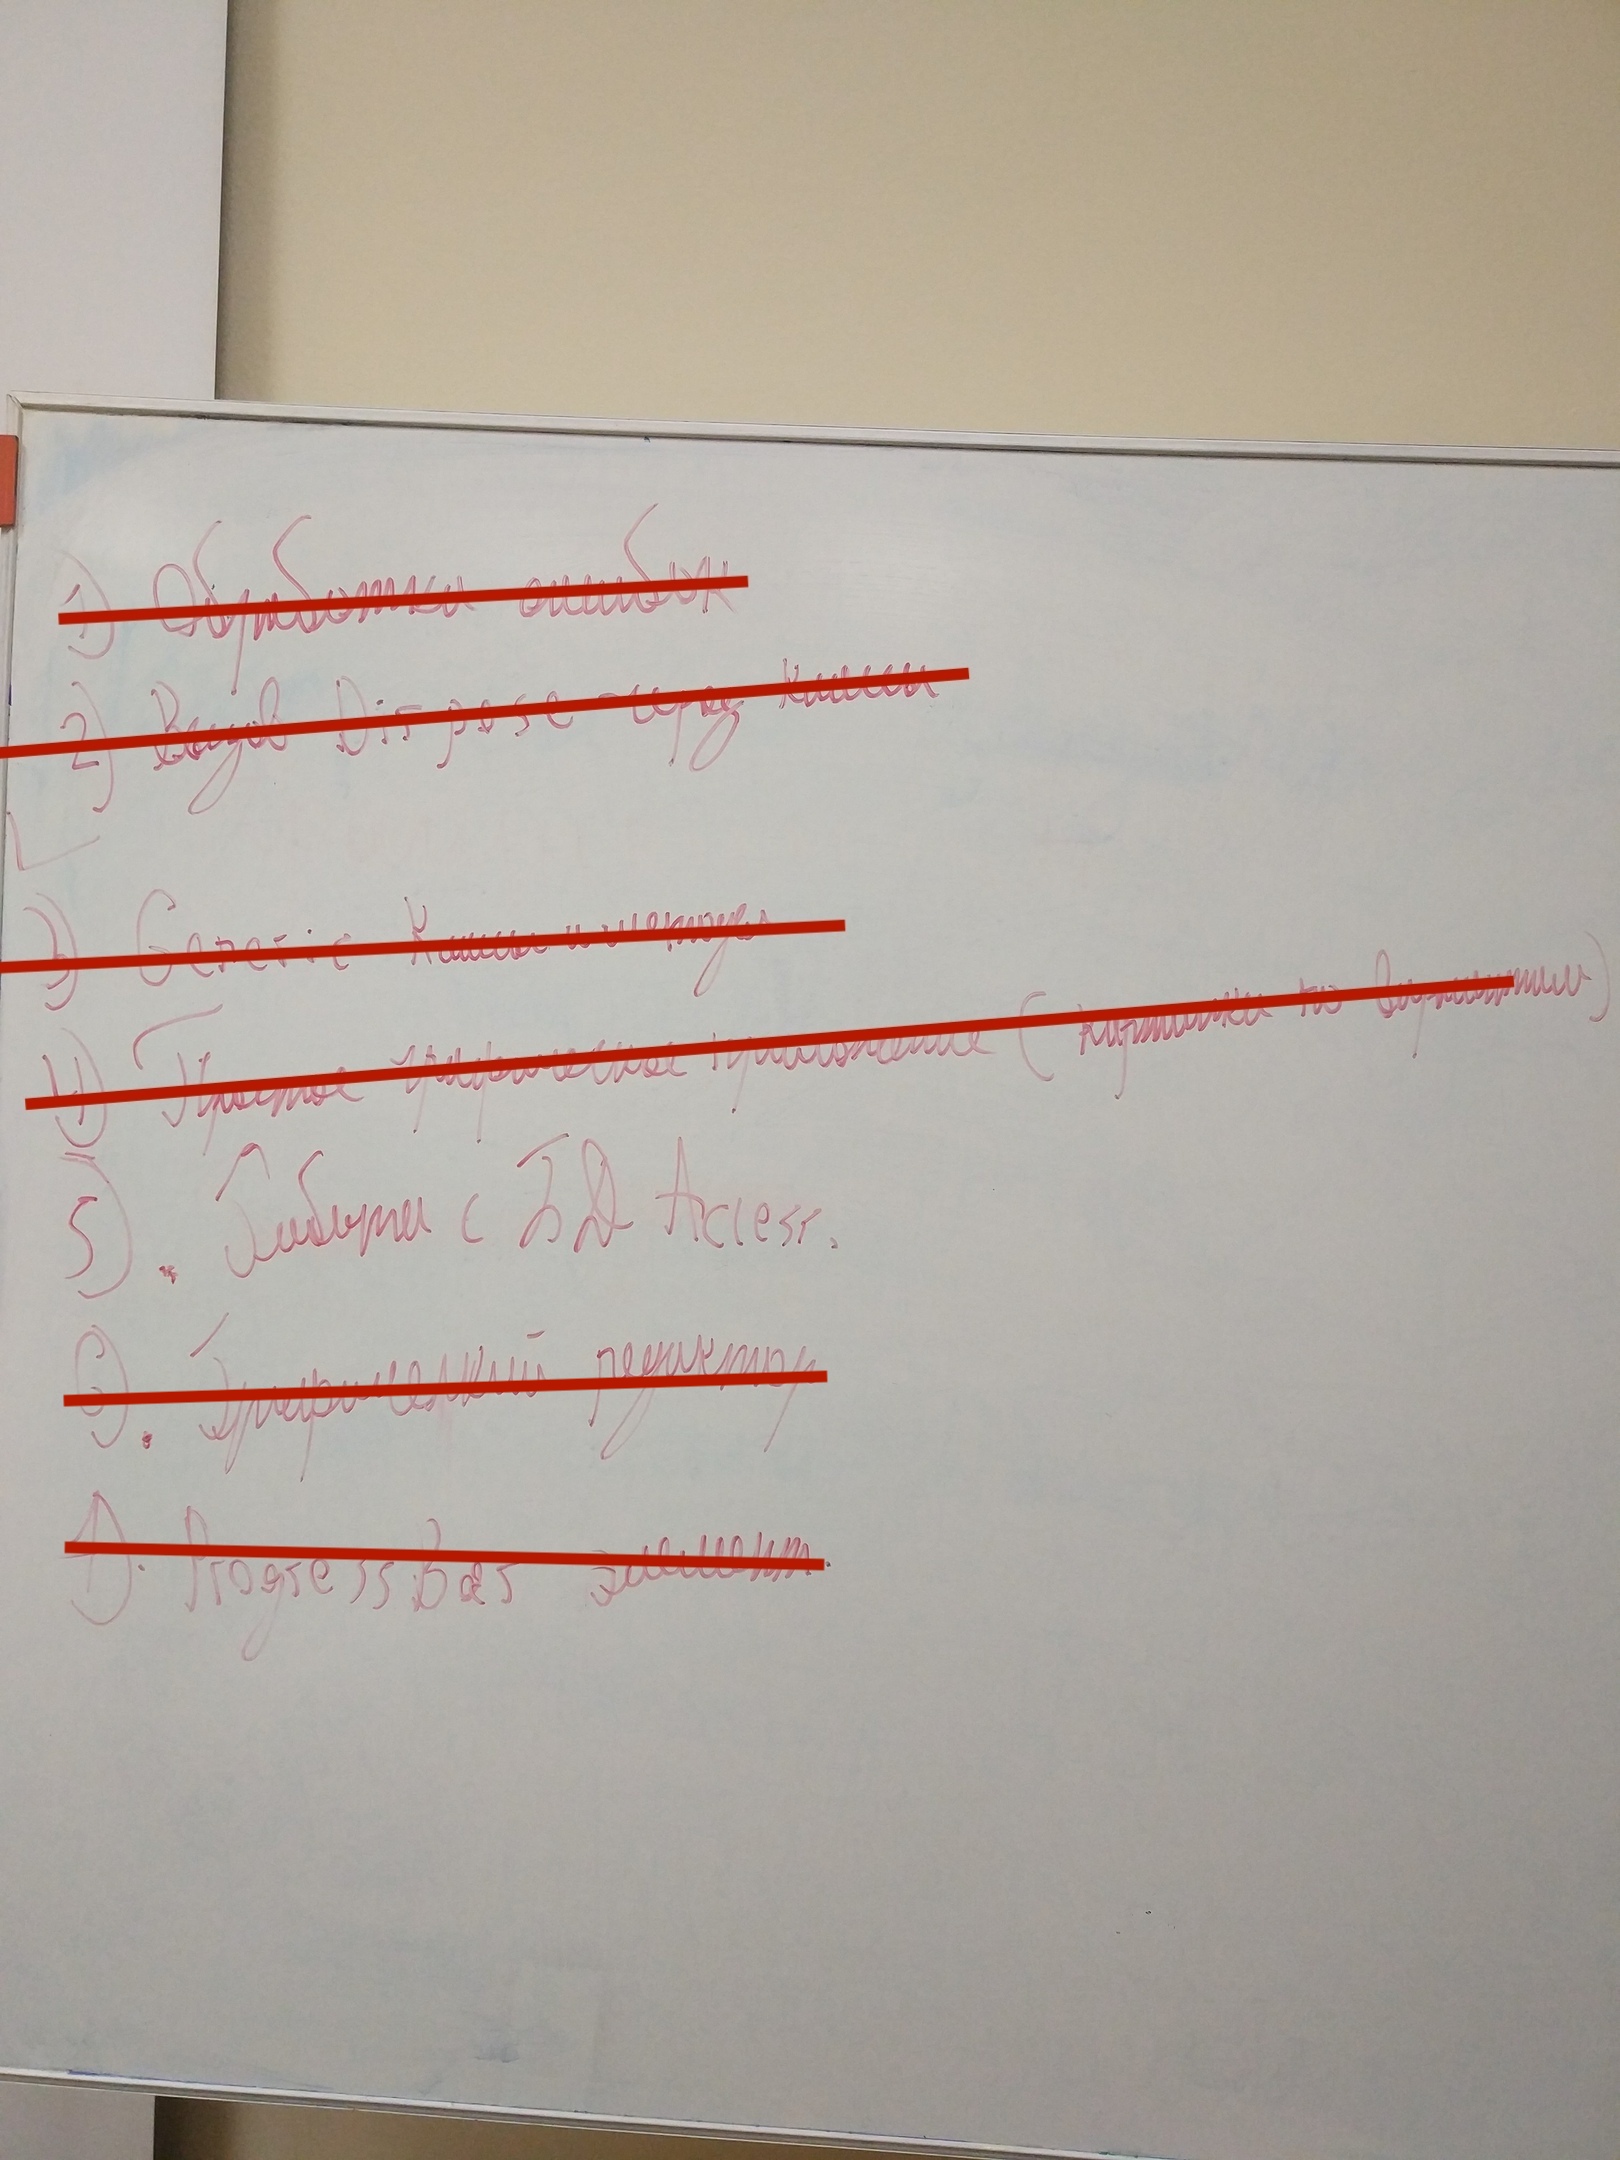 1) Обработка ошибок
2) Вызов Dispose через классы
3) Generic классы и методы
4) Простое графическое приложение (картинки по вариантам)
5). Работа с БД Access.
6). Графический редактор
7). ProgressBar элемент.